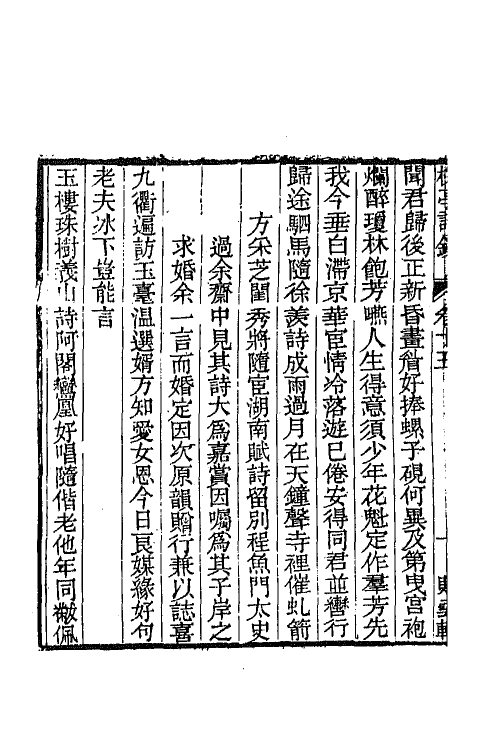 聞君歸後正新昏畫眉好捧螺子硯何異及第曳宮袍
爛醉瓊林飽芳嚥人生得意須少年花魁定作羣芳先
我今垂白滯京華宦情冷落遊已倦安得同君並轡行
歸途駟馬隨徐羨詩成雨過月在天鐘聲寺裡催虬箭
方采芝閨秀將隨宦湖南賦詩留別程魚門太史
過余齋中見其詩大爲嘉賞因囑爲其子岸之
求婚余一言而婚定因次原韻贈行兼以誌喜
九衢遍訪玉毫温選婿方知愛女恩今日良媒緣好句
老夫冰下豈能言
玉樓珠樹義山詩阿閣鸞凰好唱隨偕老他年同黻佩